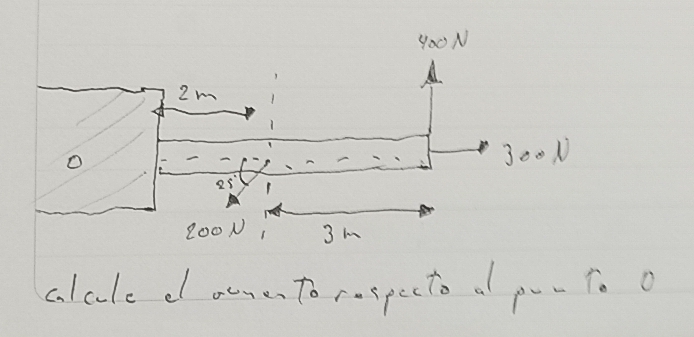 400N
2m
300N
O
25°
200N
3m
calcule el momento respecto al punto O